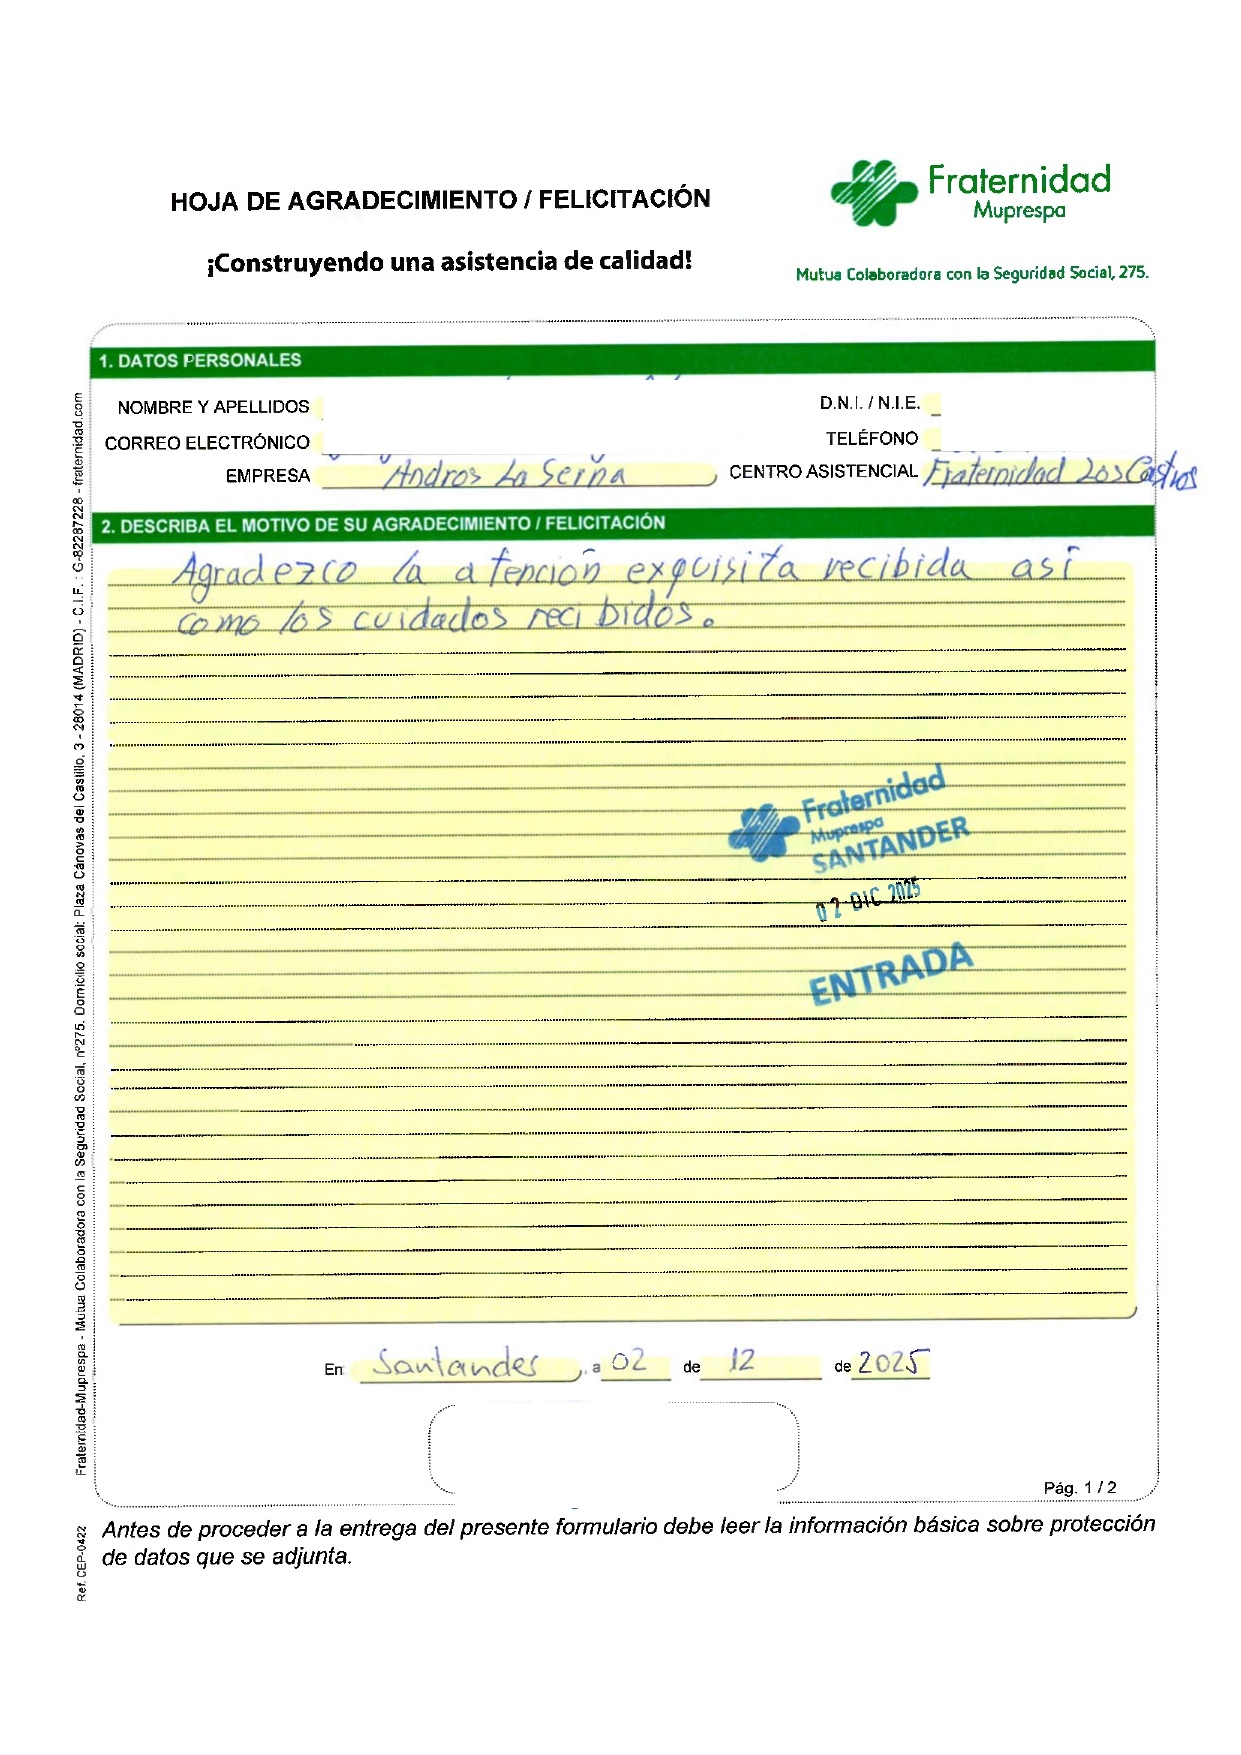 HOJA DE AGRADECIMIENTO / FELICITACIÓN
¡Construyendo una asistencia de calidad!
Fraternidad
Muprespa
Mutua Colaboradora con la Seguridad Social, 275.
1. DATOS PERSONALES
NOMBRE Y APELLIDOS
D.N.I. / N.I.E.
CORREO ELECTRÓNICO
TELÉFONO
EMPRESA Andros La Serna
CENTRO ASISTENCIAL Fraternidad Los Castros
2. DESCRIBA EL MOTIVO DE SU AGRADECIMIENTO / FELICITACIÓN
Agradezco la atención exquisita recibida así
como los cuidados recibidos.
Fraternidad
Muprespa
SANTANDER
02 DIC 2025
ENTRADA
En: Santander, a 02 de 12 de 2025
Pág. 1 / 2
Antes de proceder a la entrega del presente formulario debe leer la información básica sobre protección
de datos que se adjunta.
Fraternidad-Muprespa - Mutua Colaboradora con la Seguridad Social, nº275. Domicilio social: Plaza Cánovas del Castillo, 3 - 28014 (MADRID) - C.I.F. : G-82287228 - fraternidad.com
Ref. CEP-0422